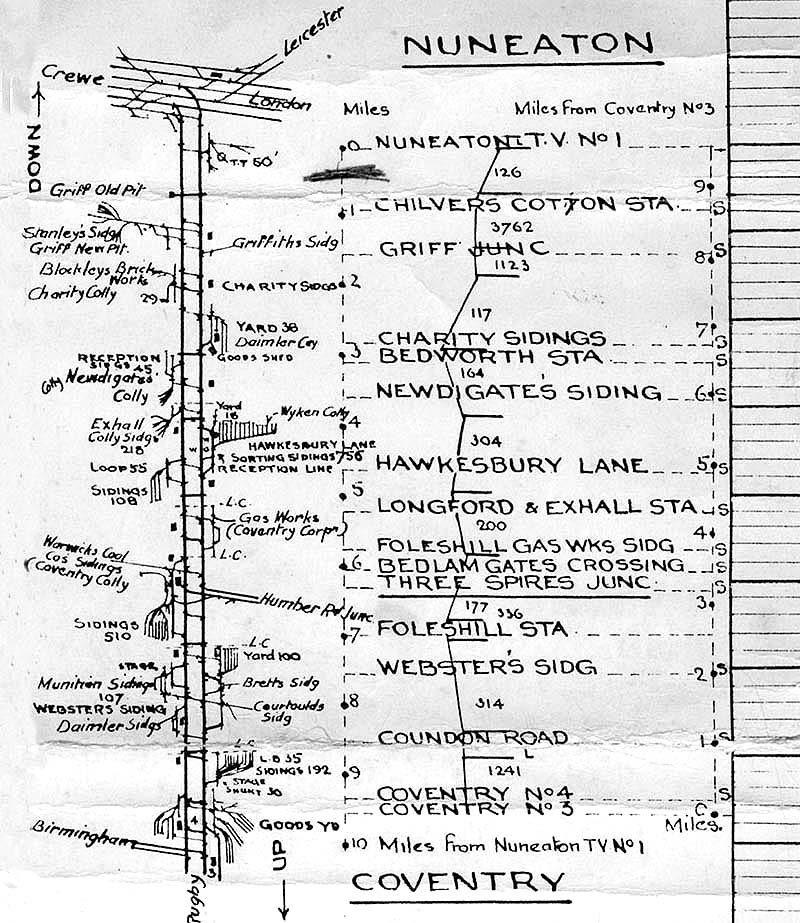 NUNEATON
Leicester
Crewe
London
Miles
Miles From Coventry No3
DOWN
0 NUNEATON T.V. No 1
T.T 50'
126
9
Griff Old Pit
1 CHILVERS COTTON STA. S
Stanley's Sidg
3762
Griff New Pit
Griffiths Sidg
GRIFF JUNC 8 S
Blockleys Brick
Works
1123
Charity Colly
29
CHARITY SIDGS
2
117
YARD 38
7
Daimler Coy
CHARITY SIDINGS S
RECEPTION
GOODS SHED
3
BEDWORTH STA S
SIDGS 45
Colly Newdigates
Colly
164
NEWDIGATE'S SIDING 6 S
Yard
18
Wyken Colly
4
Exhall
Colly Sidgs
218
304
HAWKESBURY LANE
& SORTING SIDINGS 756
RECEPTION LINE
HAWKESBURY LANE 5 S
LOOP 55
SIDINGS
108
5
L.C.
LONGFORD & EXHALL STA S
Gas Works
(Coventry Corpn)
200
4
Warwicks Coal
Cos Sidings
(Coventry Colly
L.C.
FOLESHILL GAS WKS SIDG S
6 BEDLAM GATES CROSSING S
THREE SPIRES JUNC S
Humber Rd Junc
3
177 336
SIDINGS
510
7
FOLESHILL STA
L.C
Yard 100
STAGE
WEBSTER'S SIDG 2 S
Munition Sidings
107
Bretts Sidg
WEBSTERS SIDING
Daimler Sidgs
Courtaulds
Sidg
8
314
L.C
COUNDON ROAD 1 S
L.D 35
SIDINGS 192
L
1241
9
STAGE
SHUNT 30
COVENTRY No 4 S
COVENTRY No 3
Miles.
4
GOODS YD
Birmingham
10 Miles from Nuneaton TV No 1
UP
Rugby
COVENTRY